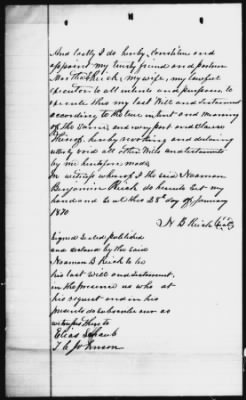 And lastly I do hereby constitute and
appoint my trusty friend and partner
Martha Reich, my wife, my lawful
executor to all intents and purposes to
execute this my last Will and testament
according to the true intent and meaning
of the same and every part and clause
thereof hereby revoking and declaring
utterly void all other Wills and testaments
by me heretofore made
In witness whereof I the said Naaman
Benjamin Reich do hereunto set my
hand and seal this 28th day of January
1870
N B Reich
Signed sealed published
and declared by the said
Naaman B Reich to be
his last will and testament,
in the presence of us who at
his request and in his
presence do subscribe our as
witness thereto
Elias Schaub
T. A. Johnson